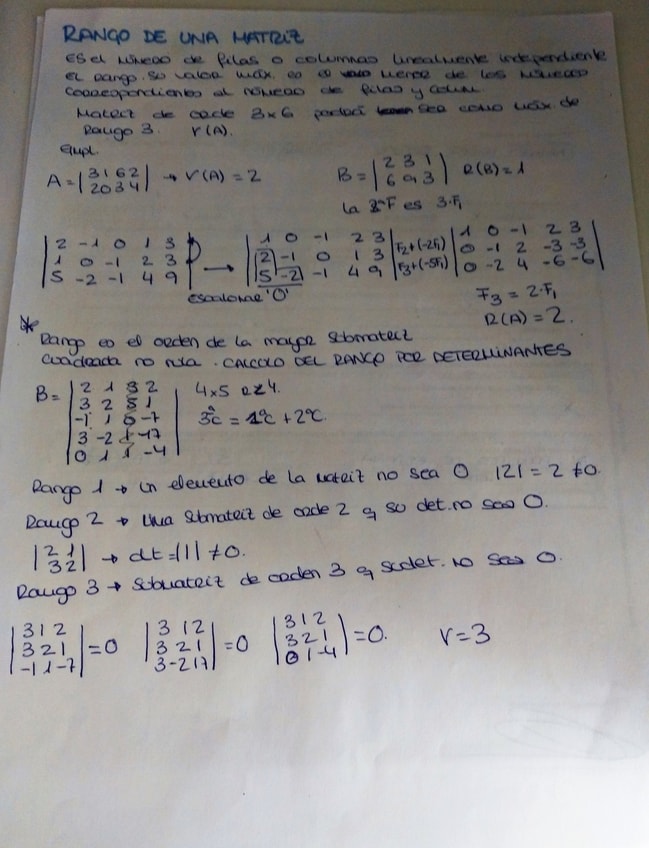 RANGO DE UNA MATRIZ
Es el número de filas o columnas linealmente independiente
El rango. su valor máx. es el menor de los números
correspondientes al número de filas y colum.
Matriz de orde 3x6 podrá sea como máx. de
Rango 3. r(A).
Ejmpl.
A = |3 1 6 2| → r(A) = 2 B = |2 3 1| R(B) = 1
|2 0 3 4| |6 9 3|
la 2ªF es 3·F₁
|2 -1 0 1 3| |1 0 -1 2 3| |1 0 -1 2 3|
|1 0 -1 2 3| → |2 -1 0 1 3| F₂+(-2F₁) |0 -1 2 -3 -3|
|5 -2 -1 4 9| |5 -2 -1 4 9| F₃+(-5F₁) |0 -2 4 -6 -6|
escalonar '0' F₃ = 2·F₁
R(A) = 2.
* Rango es el orden de la mayor submatriz
cuadrada no nula. CALCULO DEL RANGO POR DETERMINANTES
B = |2 1 3 2| 4x5 R≤4.
|3 2 5 1| 3ªc = 1ªc + 2ªc
|-1 1 0 -7|
|3 -2 1 -17|
|0 1 1 -4|
Rango 1 → un elemento de la matriz no sea 0 |2| = 2 ≠ 0.
Rango 2 → Una submatriz de orde 2 q su det. no sea 0.
|2 1| → dt = |1| ≠ 0.
|3 2|
Rango 3 → submatriz de orden 3 q su det. no sea 0.
|3 1 2| |3 1 2| |3 1 2|
|3 2 1| = 0 |3 2 1| = 0 |3 2 1| = 0. r = 3
|-1 1 -7| |3 -2 17| |0 1 -4|